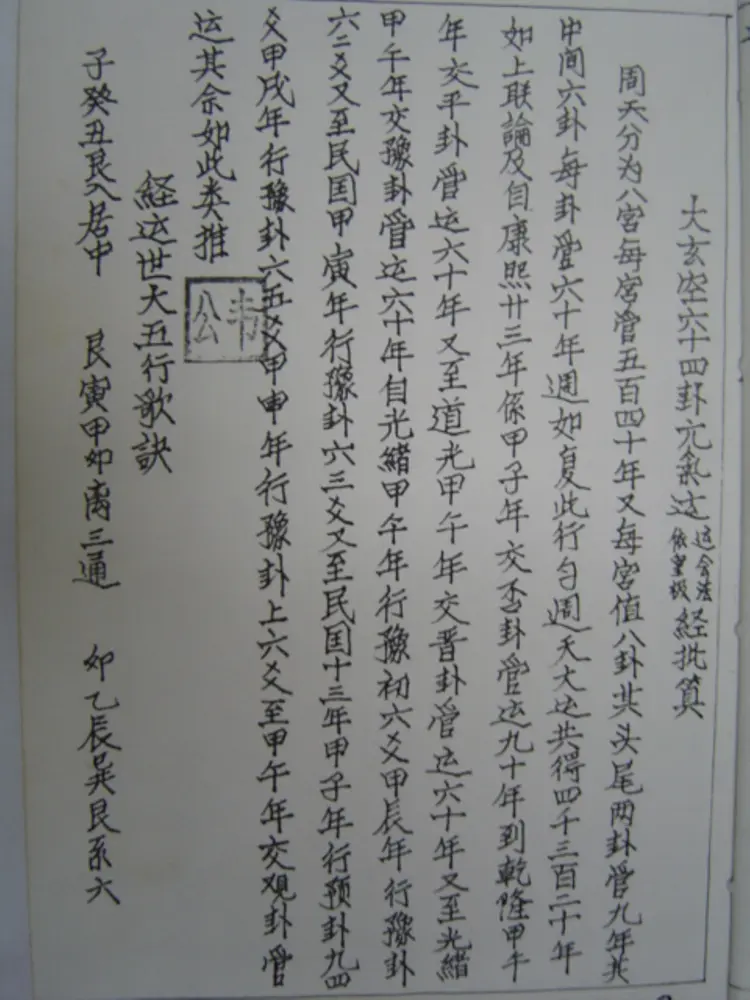 大玄空六十四卦亢氣运 运令法依皇极 経批算
周天分为八宮每宮管五百四十年又每宮值八卦共头尾两卦管九年共
中间六卦每卦管六十年週如复此行勻週天大运共得四千三百二十年
如上联論及自康熙廿三年係甲子年交否卦管运九十年到乾隆甲午
年交平卦管运六十年又至道光甲午年交晋卦管运六十年又至光緒
甲午年交豫卦管运六十年自光緒甲午年行豫初六爻甲辰年行豫卦
六二爻又至民国甲寅年行豫卦六三爻又至民国十三年甲子年行预卦九四
爻甲戌年行豫卦六五爻甲申年行豫卦上六爻至甲午年交观卦管
运其余如此类推
韦公
経运世大五行歌訣
子癸丑艮入居中 艮寅甲卯离三通 卯乙辰巽艮系六